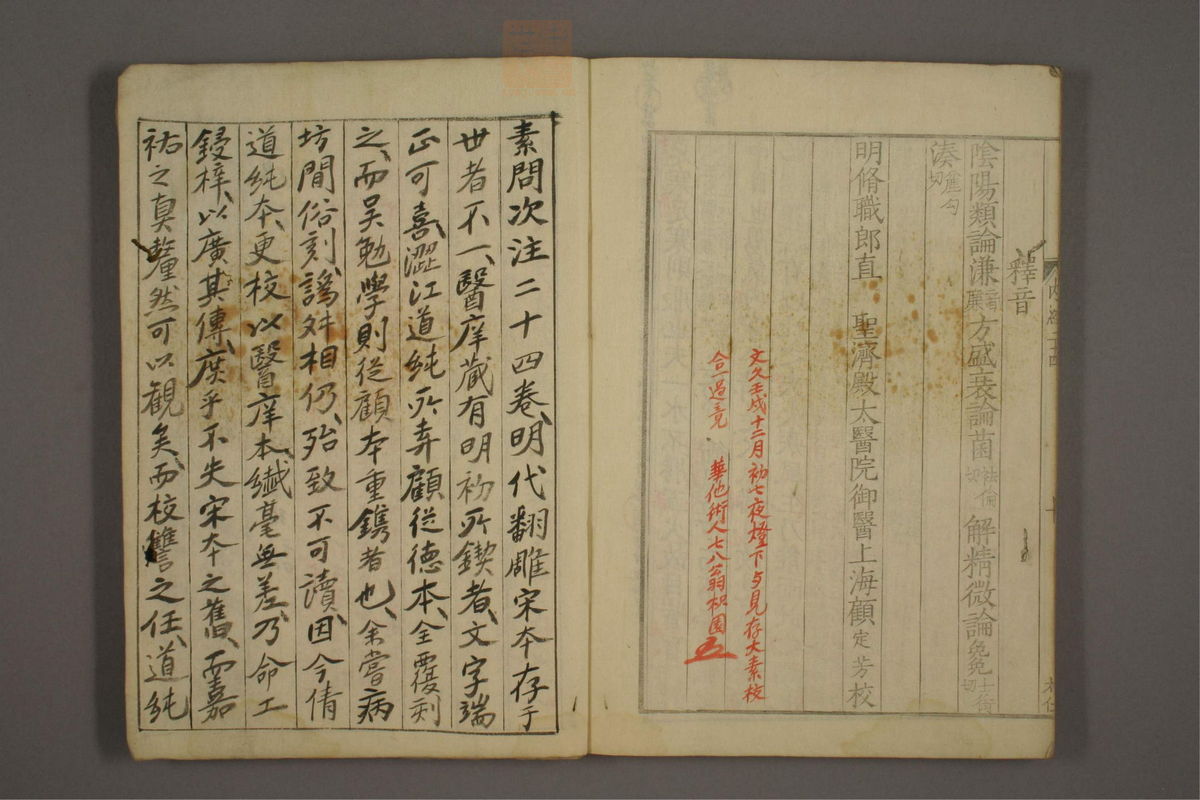 釋音
陰陽類論溓音廉方盛衰論菌祛倫切解精微論㝹士銜切
湊麄勾切
明脩職郎直　聖濟殿太醫院御醫上海顧定芳校
文久壬戌十二月初七夜燈下与見存大素校
合一過竟　華他術人七八翁枳園
素問次注二十四卷、明代翻雕宋本存于
世者不一、醫庠藏有明初所鍥者、文字端
正可喜、澀江道純所弆顧從德本、全覆刻
之、而吳勉學則從顧本重鐫者也、余嘗病
坊間俗刻、譌舛相仍、殆致不可讀、因今倩
道純本、更校以醫庠本、纖毫無差、乃命工
鋟梓、以廣其傳、庶乎不失宋本之舊、而嘉
祐之眞、釐然可以觀矣、而校讐之任、道純